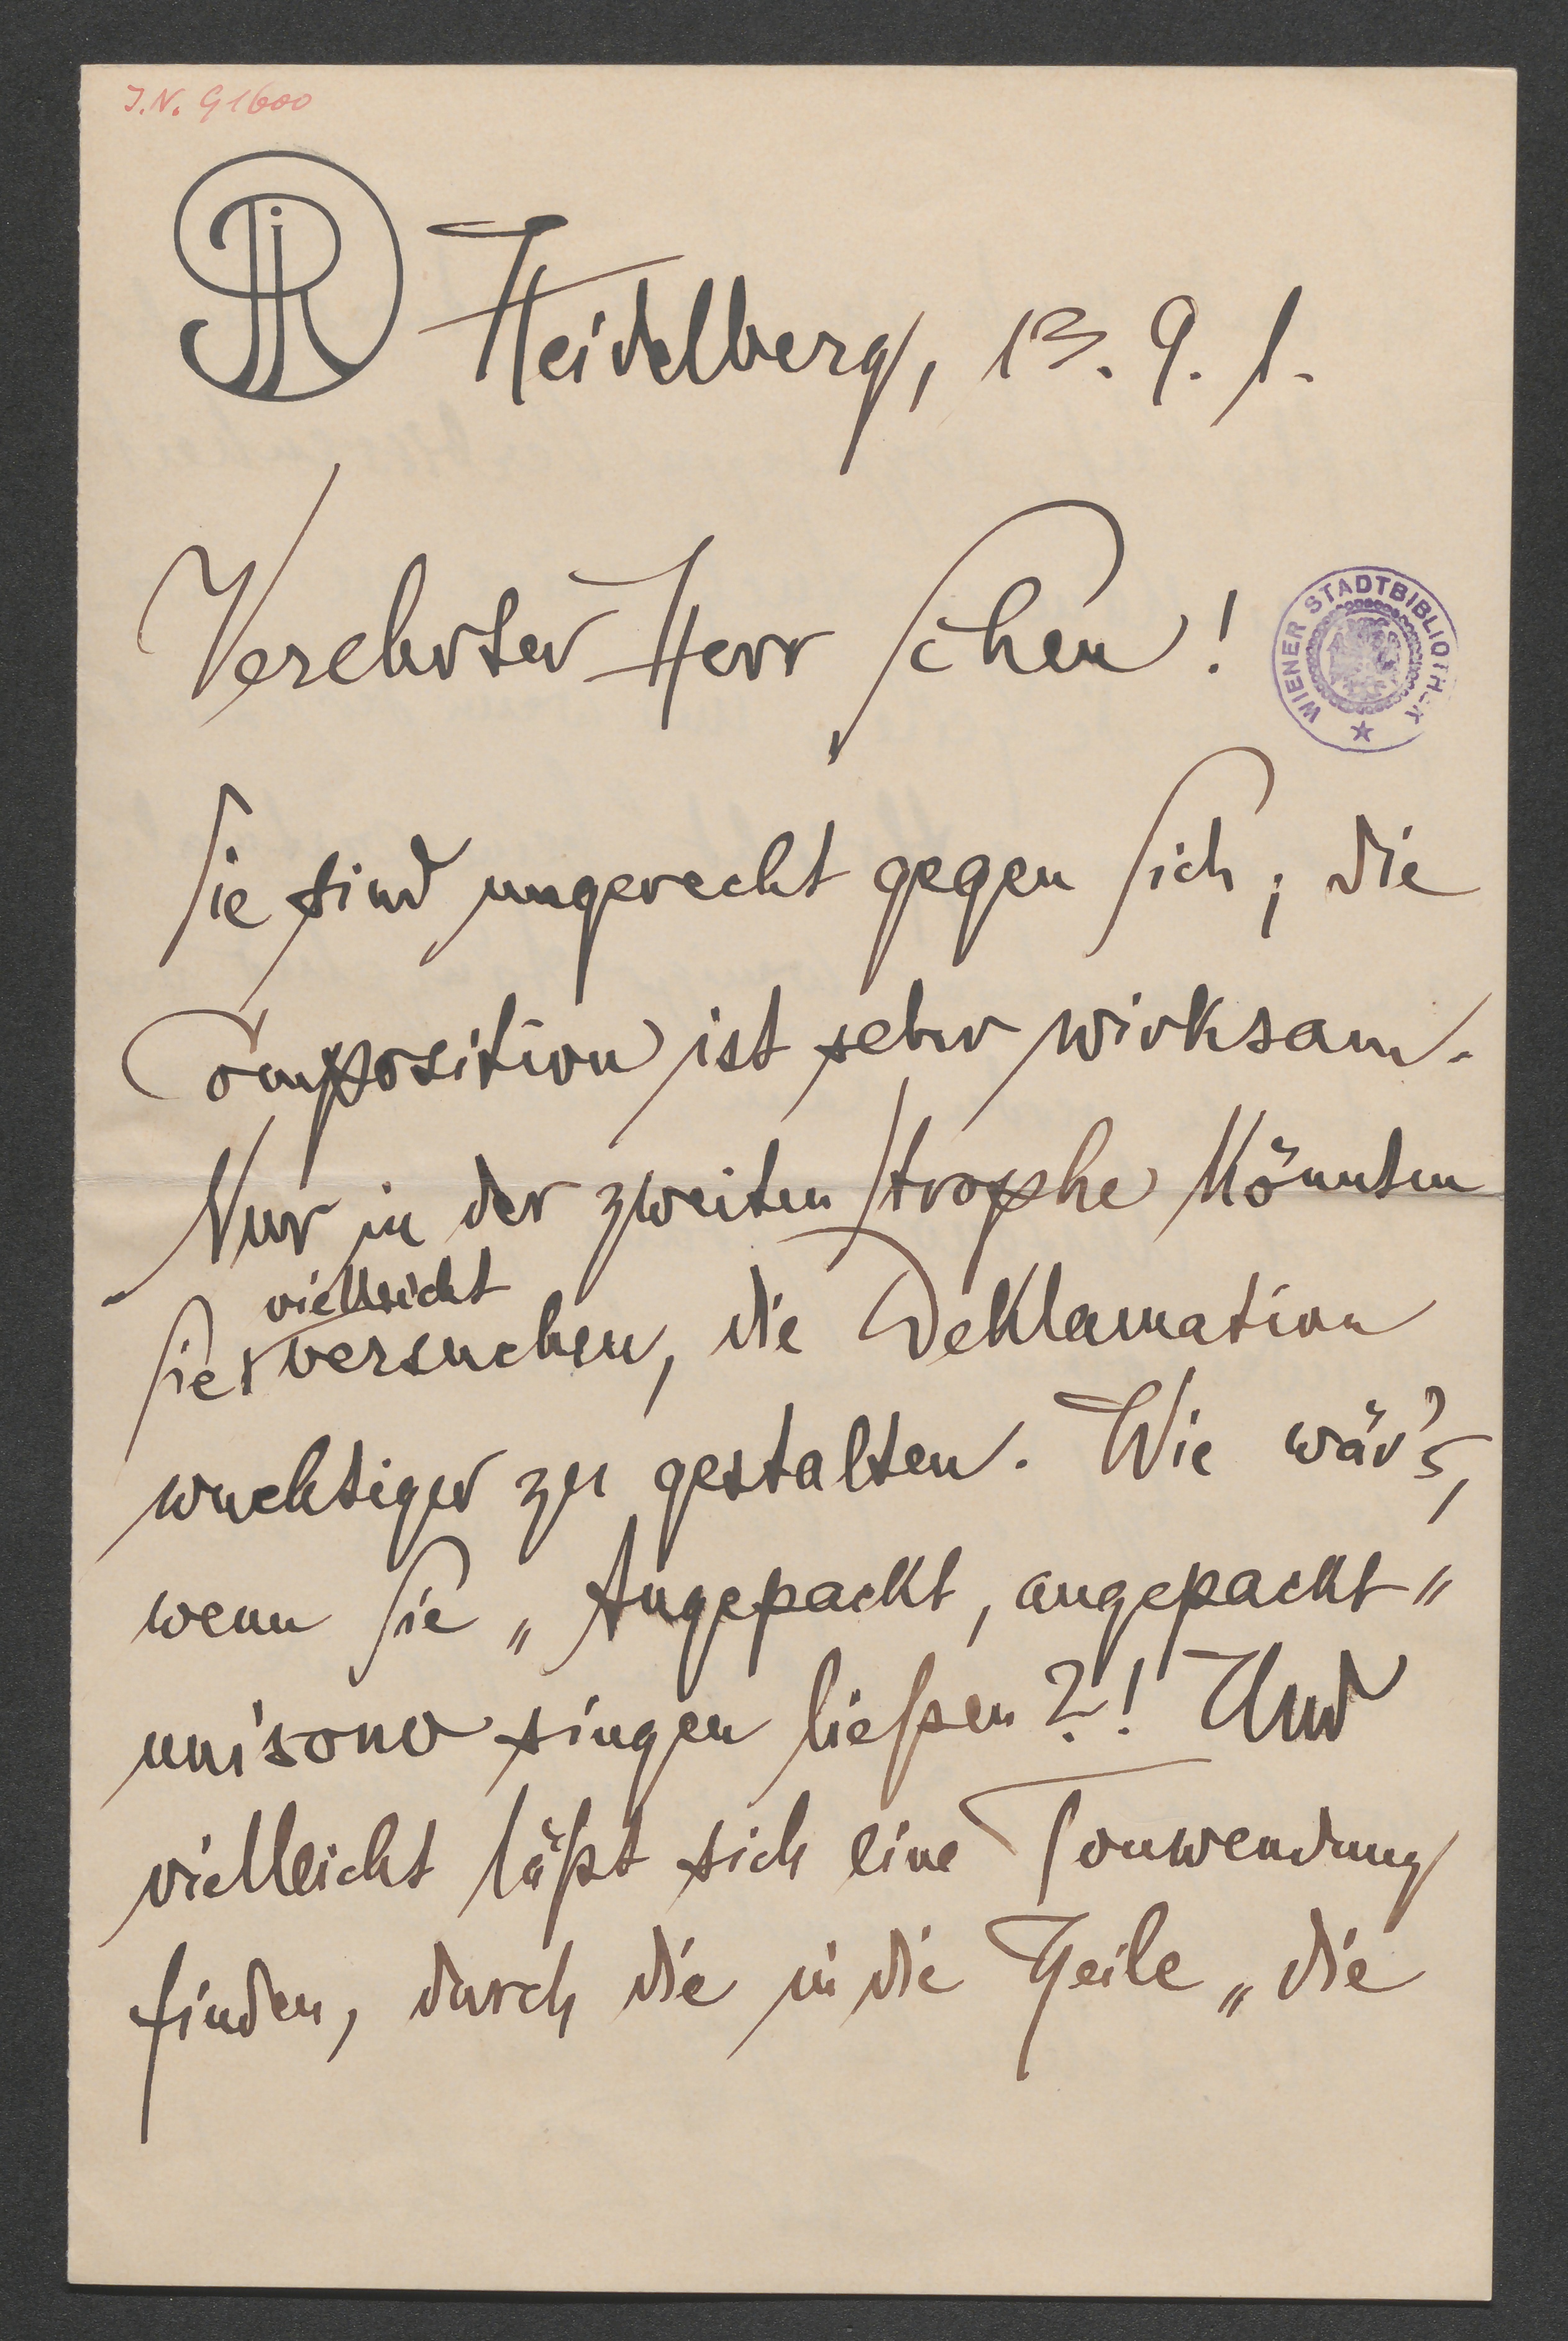 J.N. 91600
Heidelberg, 13. 9. 1.
Verehrter Herr Scheu!
WIENER STADTBIBLIOTHEK
Sie sind ungerecht gegen Sich; die
Composition ist sehr wirksam.
Nur in der zweiten Strophe könnten
vielleicht
Sie versuchen, die Deklamation
wuchtiger zu gestalten. Wie wär's,
wenn Sie „Angepackt, angepackt"
unisono singen ließen?! Und
vielleicht läßt sich eine Tonwendung
finden, durch die in die Zeile „die